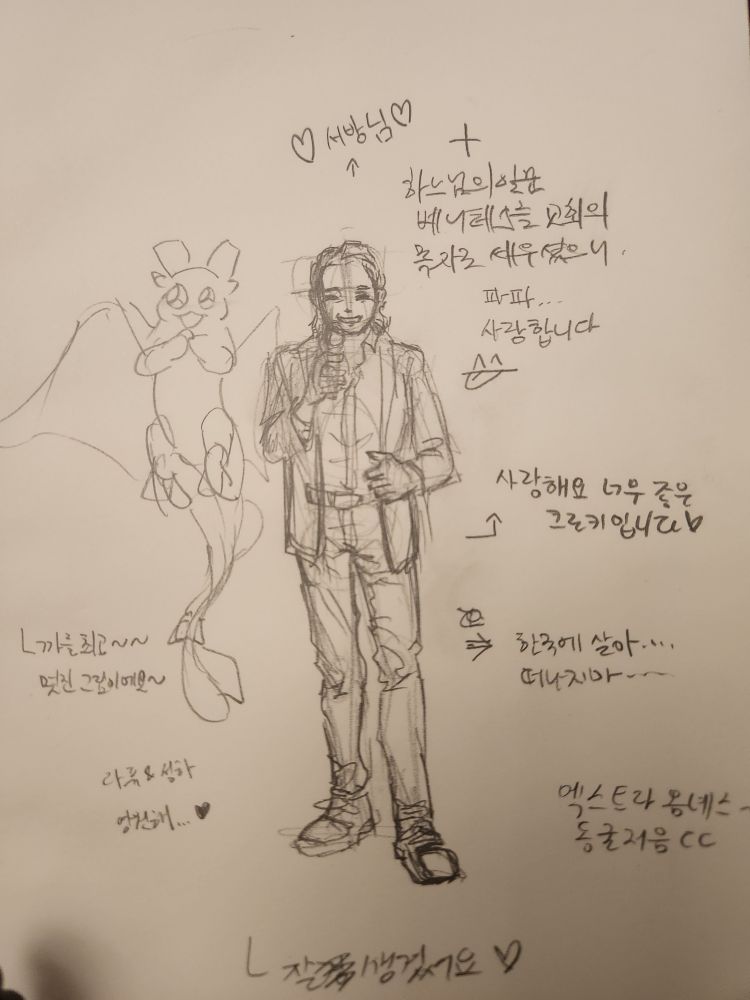 ♡ 서방님 ♡
하느님의 일꾼
베니테스를 교회의
목자로 세우셨으니.
파파...
사랑합니다
사랑해요 너무 좋은
크로키입니다♥
한국에 살아....
떠나지마~~~
까를 최고~~
멋진 그림이에요~
라퓨 & 성하
영원해... ♥
엑스트라 옴네스-
동굴저음 CC
잘생겼어요 ♡